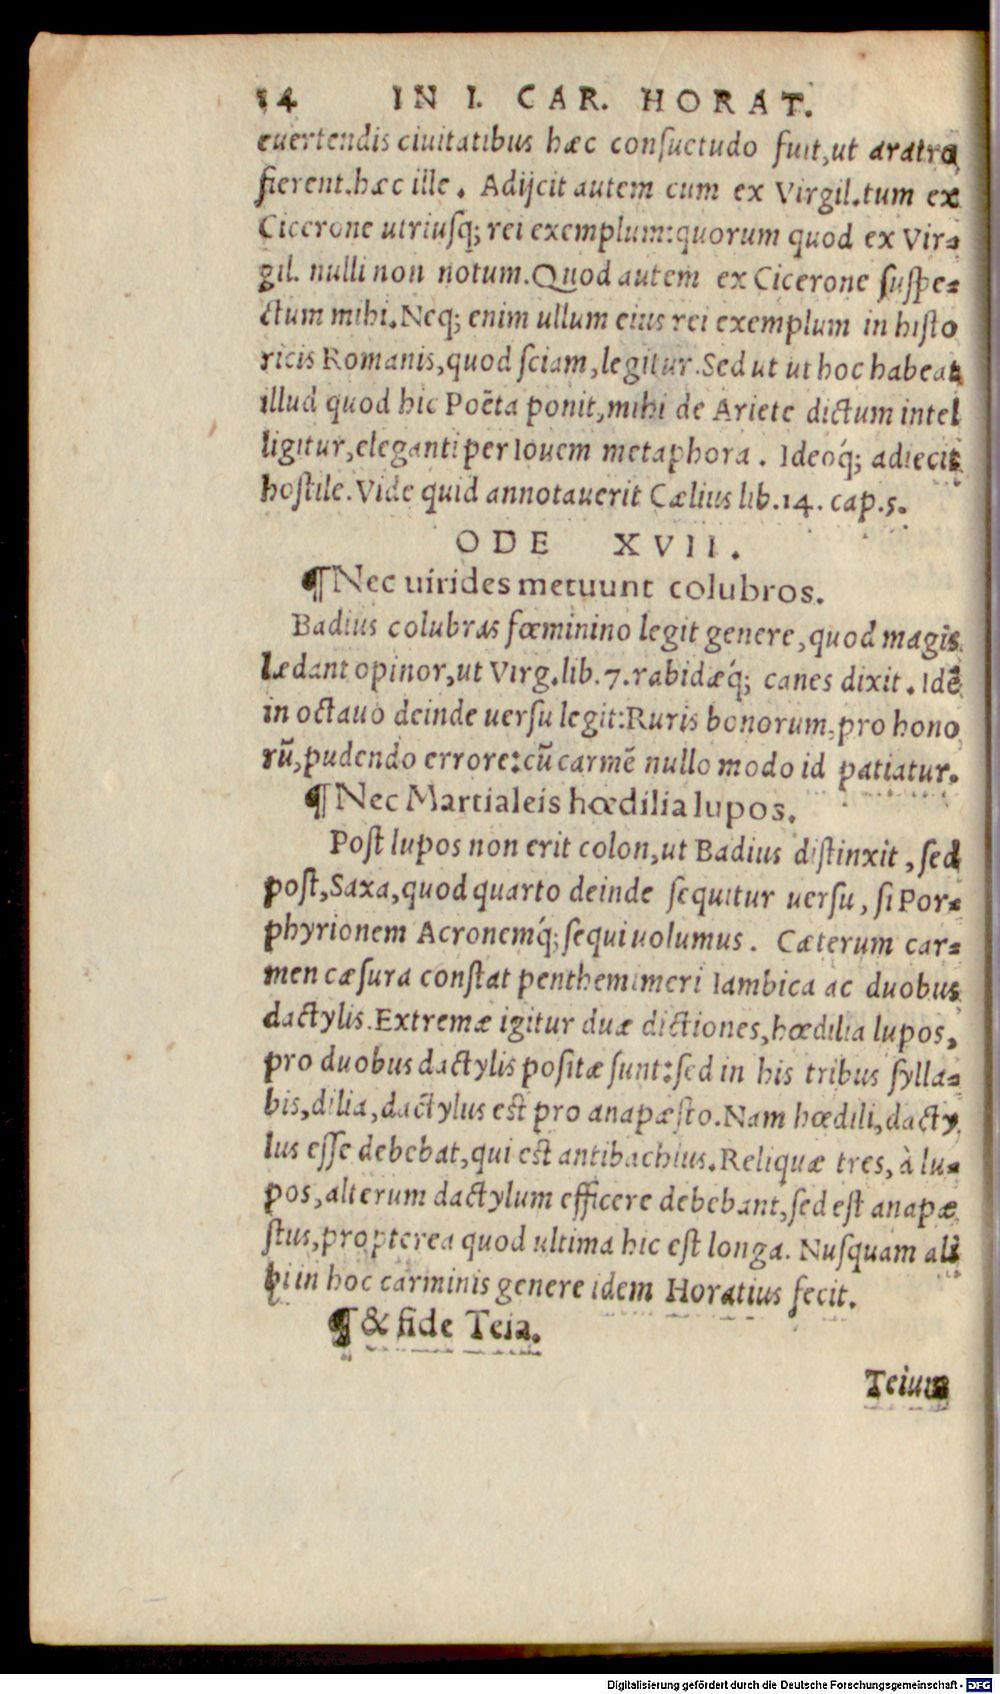 14 IN I. CAR. HORAT.
euertendis ciuitatibus hæc consuetudo fuit,ut aratro
fierent.hæc ille. Adijcit autem cum ex Virgil.tum ex
Cicerone utriusq; rei exemplum:quorum quod ex Vir-
gil. nulli non notum.Quod autem ex Cicerone suspe-
ctum mihi.Neq; enim ullum eius rei exemplum in histo
ricis Romanis,quod sciam,legitur.Sed ut ut hoc habeat
illud quod hic Poëta ponit,mihi de Ariete dictum intel
ligitur,eleganti per Iouem metaphora. Ideoq́; adiecit
hostile.Vide quid annotauerit Cælius lib.14. cap.5.
ODE XVII.
¶Nec uírides metuunt colubros.
Badius colubras fœminino legit genere,quod magis
lædant opinor,ut Virg.lib.7.rabidæq́; canes dixit. Idẽ
in octauo deinde uersu legit:Ruris bonorum,pro hono
rũ,pudendo errore:cũ carmẽ nullo modo id patiatur.
¶Nec Martialeis hœdilia lupos.
Post lupos non erit colon,ut Badius distinxit, sed
post,Saxa,quod quarto deinde sequitur uersu, si Por-
phyrionem Acronemq́; sequi uolumus. Cæterum car-
men cæsura constat penthemimeri Iambica ac duobus
dactylis.Extremæ igitur duæ dictiones,hœdilia lupos,
pro duobus dactylis positæ sunt:sed in his tribus sylla-
bis,dilia,dactylus est pro anapæsto.Nam hœdili,dacty
lus esse debebat,qui est antibachius.Reliquæ tres, à lu-
pos,alterum dactylum efficere debebant,sed est anapæ
stus,propterea quod ultima hic est longa. Nusquam ali
bi in hoc carminis genere idem Horatius fecit.
¶& fide Teia.
Teium
Digitalisierung gefördert durch die Deutsche Forschungsgemeinschaft - DFG